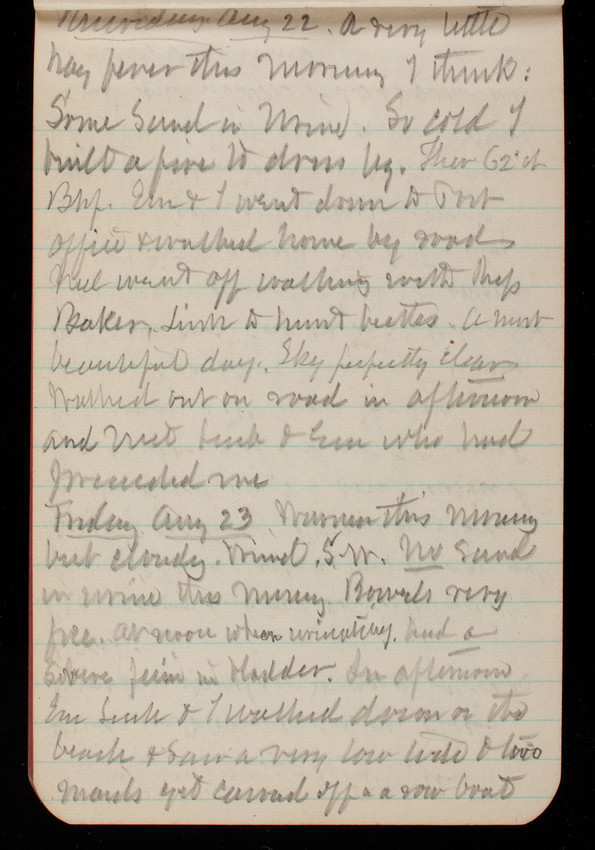 Thursday Aug 22. A very little
hay fever this morning I think:
Some Sand in Urine. So cold I
built a fire to dress by. Ther 62° at
Bkf. Em & I went down to Post
office & walked home by road
went off walking with
Baker, to hunt beetles. A most
beautiful day. Sky perfectly clear
Walked out on road in afternoon
and met & Em who had
preceeded me
Friday Aug 23 Warmer this morning
but cloudy. Wind, S.W. No Sand
in urine this morning Bowels very
free. At noon when urinating, had a
Severe pain in bladder. In afternoon
Em & I walked down on the
beach & Saw a very low tide & two
get off a row boat